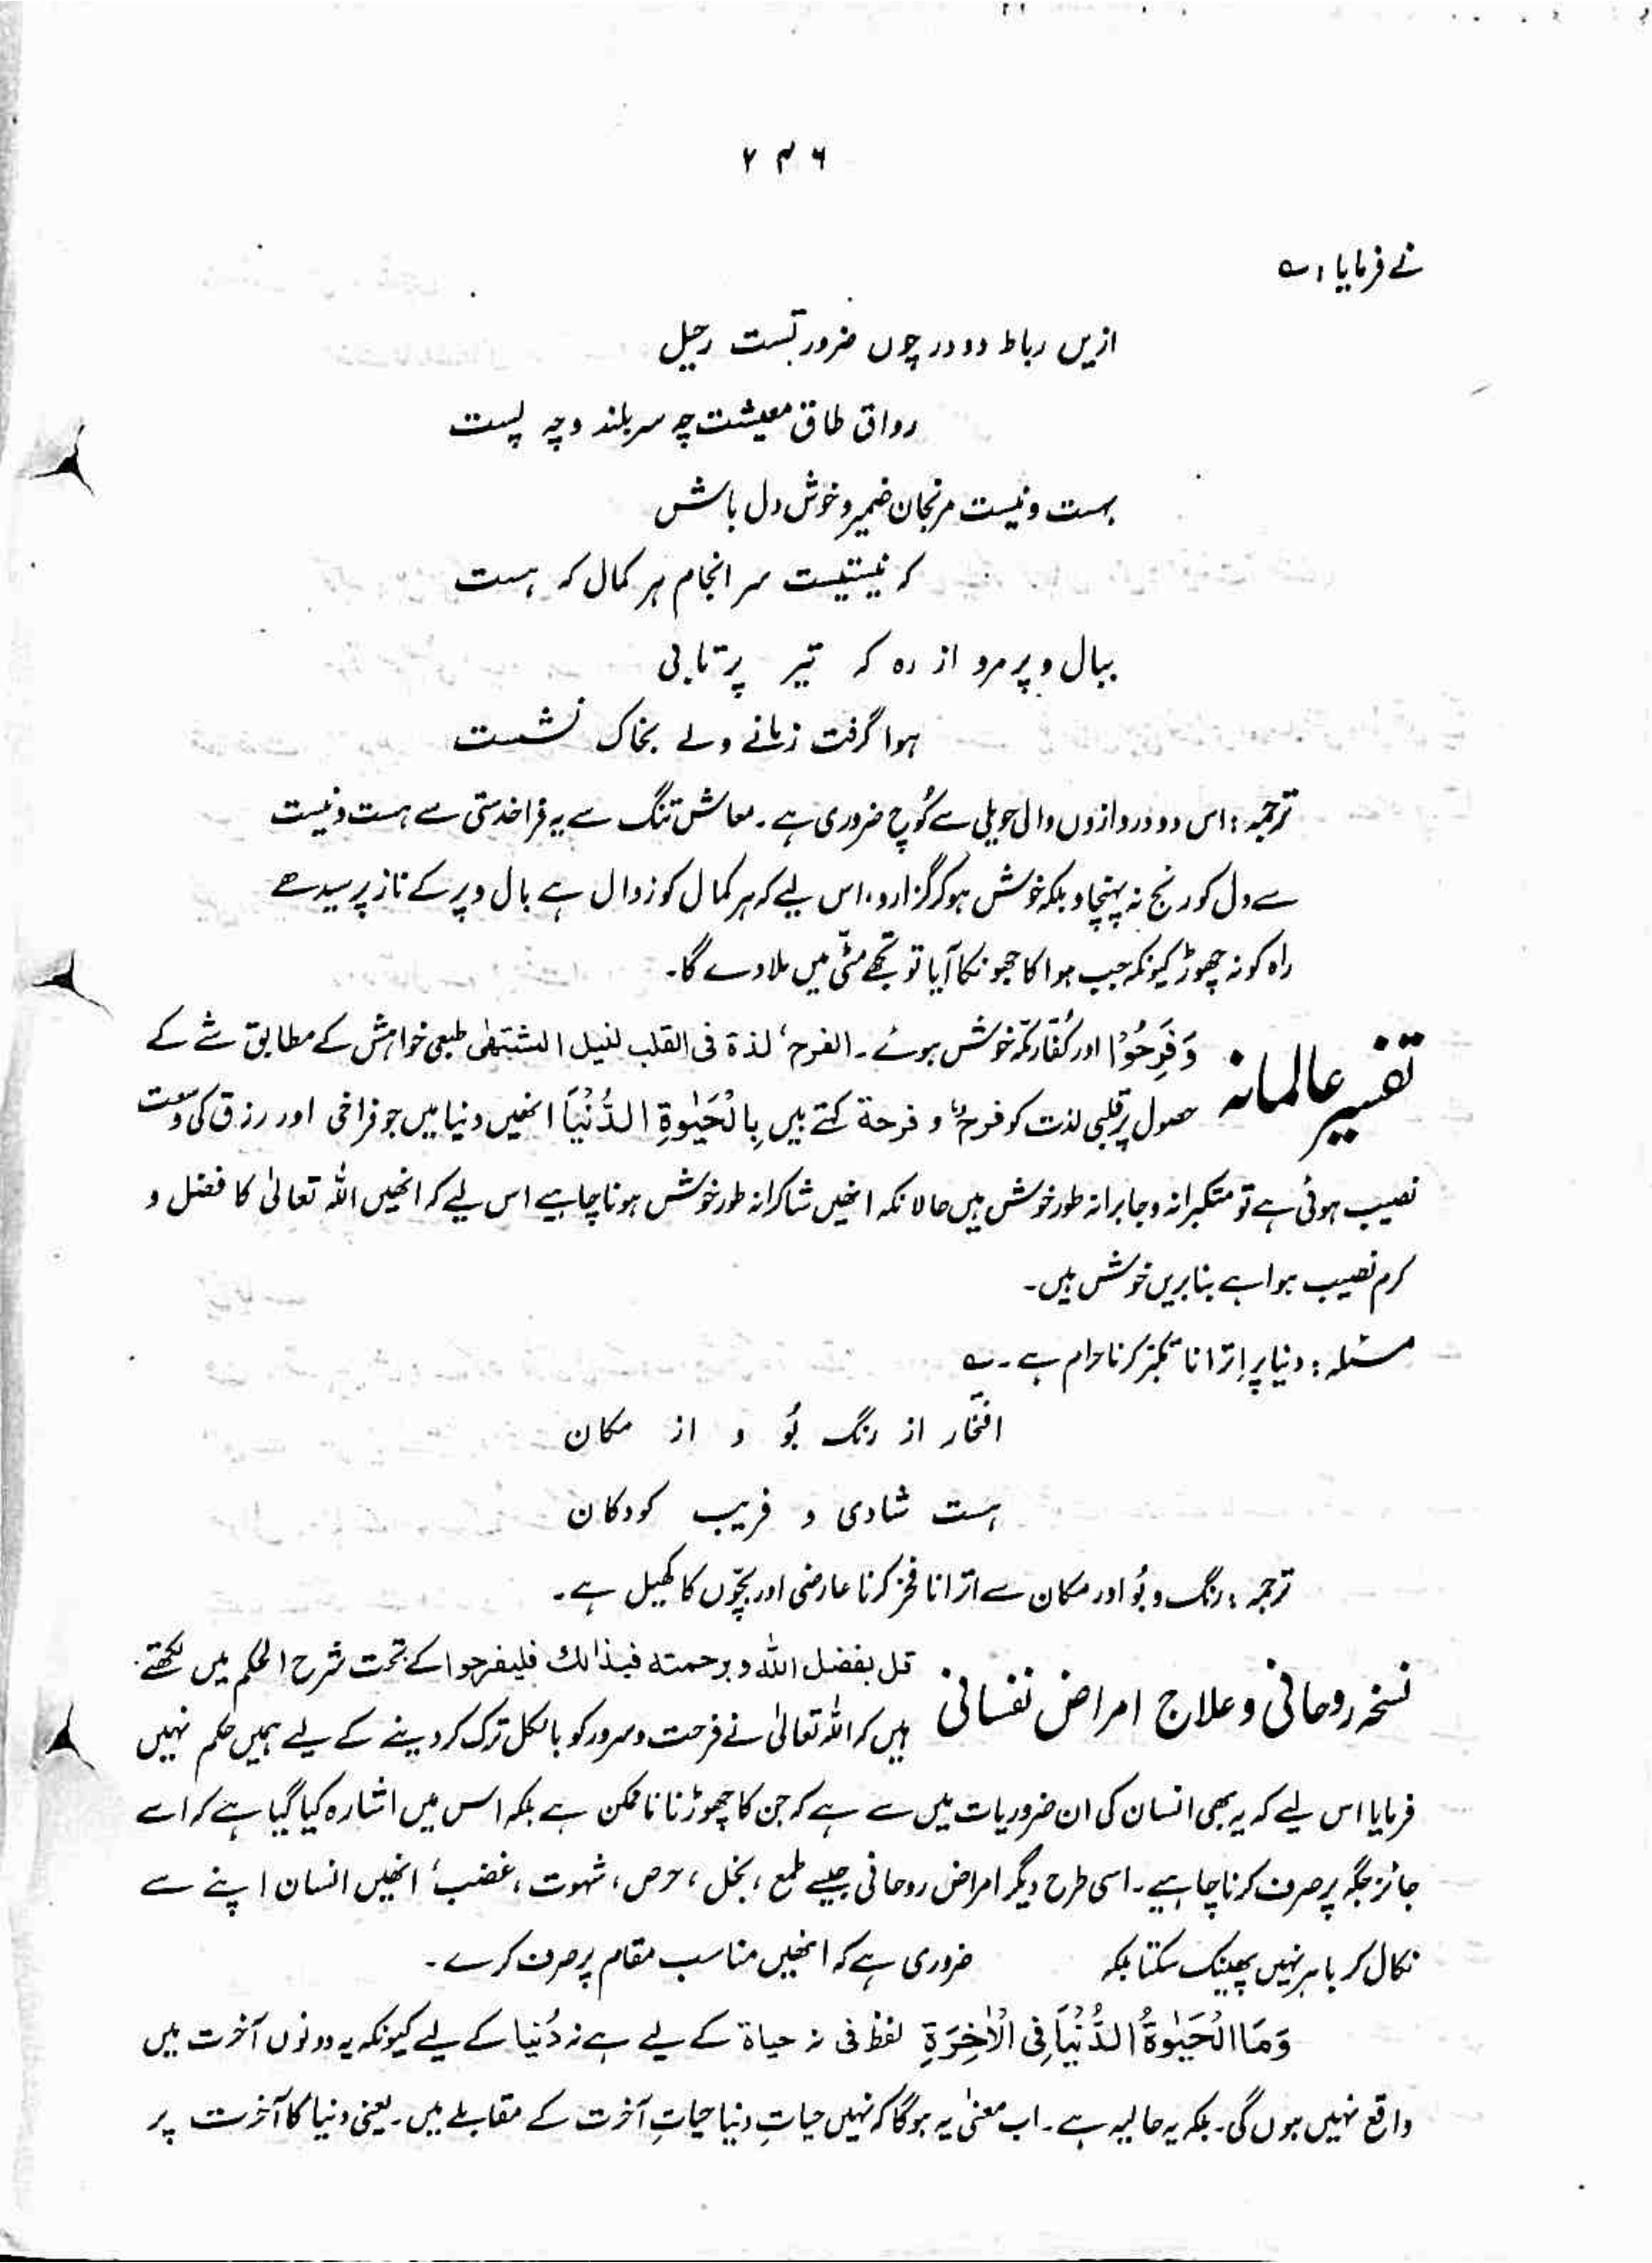 ۲۴۶
نے فرمایا ؎
ازیں رباط دو در چوں ضرورتست رحیل
رواق طاق معیشت چہ سربلند و چہ پست
بہست و نیست مرنجان ضمیر و خوش دل باش
کہ نیستیست سر انجام ہر کمال کہ ہست
ببال و پر مرو از رہ کہ تیر پرتابی
ہوا گرفت زمانے ولے بخاک نشست
ترجمہ: اس دو دروازوں والی حویلی سے کُوچ ضروری ہے۔ معاش تنگ سے یہ فراخدستی سے ہست و نیست
سے دل کو رنج نہ پہنچاؤ بلکہ خوش ہو کر گزارو، اس لیے کہ ہر کمال کو زوال ہے بال و پر کے ناز پر سیدھے
راہ کو نہ چھوڑ کیونکہ جب ہوا کا جھونکا آیا تو تجھے مٹی میں ملا دے گا۔
تفسیر عالمانہ وَفَرِحُوْا اور کُفّارِ مکّہ خوش ہوئے۔ الفرح، لذۃ فی القلب لنیل المشتھٰی طبعی خواہش کے مطابق شے کے
حصول پر قلبی لذت کو فرح و فرحۃ کہتے ہیں بِالْحَیٰوۃِ الدُّنْیَا انھیں دنیا میں جو فراخی اور رزق کی وسعت
نصیب ہوئی ہے تو متکبرانہ و جابرانہ طور خوش ہیں حالانکہ انھیں شاکرانہ طور خوش ہونا چاہیے اس لیے کہ انھیں اللہ تعالیٰ کا فضل و
کرم نصیب ہوا ہے بنا بریں خوش ہیں۔
مسئلہ: دنیا پر اِترانا تکبّر کرنا حرام ہے۔ ؎
افتخار از رنگ بُو و از مکان
ہست شادی و فریب کودکان
ترجمہ: رنگ و بُو اور مکان سے اترانا فخر کرنا عارضی اور بچّوں کا کھیل ہے۔
نسخہ روحانی و علاج امراض نفسانی قل بفضل اللہ و برحمتہ فبذالک فلیفرحوا کے تحت شرح الحکم میں لکھتے
ہیں کہ اللہ تعالیٰ نے فرحت و سرور کو بالکل ترک کر دینے کے لیے ہمیں حکم نہیں
فرمایا اس لیے کہ یہ بھی انسان کی ان ضروریات میں سے ہے کہ جن کا چھوڑنا ناممکن ہے بلکہ اس میں اشارہ کیا گیا ہے کہ اسے
جائز جگہ پر صرف کرنا چاہیے۔ اسی طرح دیگر امراض روحانی جیسے طمع، بخل، حرص، شہوت، غضب، انھیں انسان اپنے سے
نکال کر باہر نہیں پھینک سکتا بلکہ ضروری ہے کہ انھیں مناسب مقام پر صرف کرے۔
وَمَا الْحَیٰوۃُ الدُّنْیَا فِی الْاٰخِرَۃِ لفظ فی نہ حیاۃ کے لیے ہے نہ دُنیا کے لیے کیونکہ یہ دونوں آخرت میں
واقع نہیں ہوں گی۔ بلکہ یہ حالیہ ہے۔ اب معنیٰ یہ ہوگا کہ نہیں حیاتِ دنیا حیاتِ آخرت کے مقابلے میں۔ یعنی دنیا کا آخرت پر